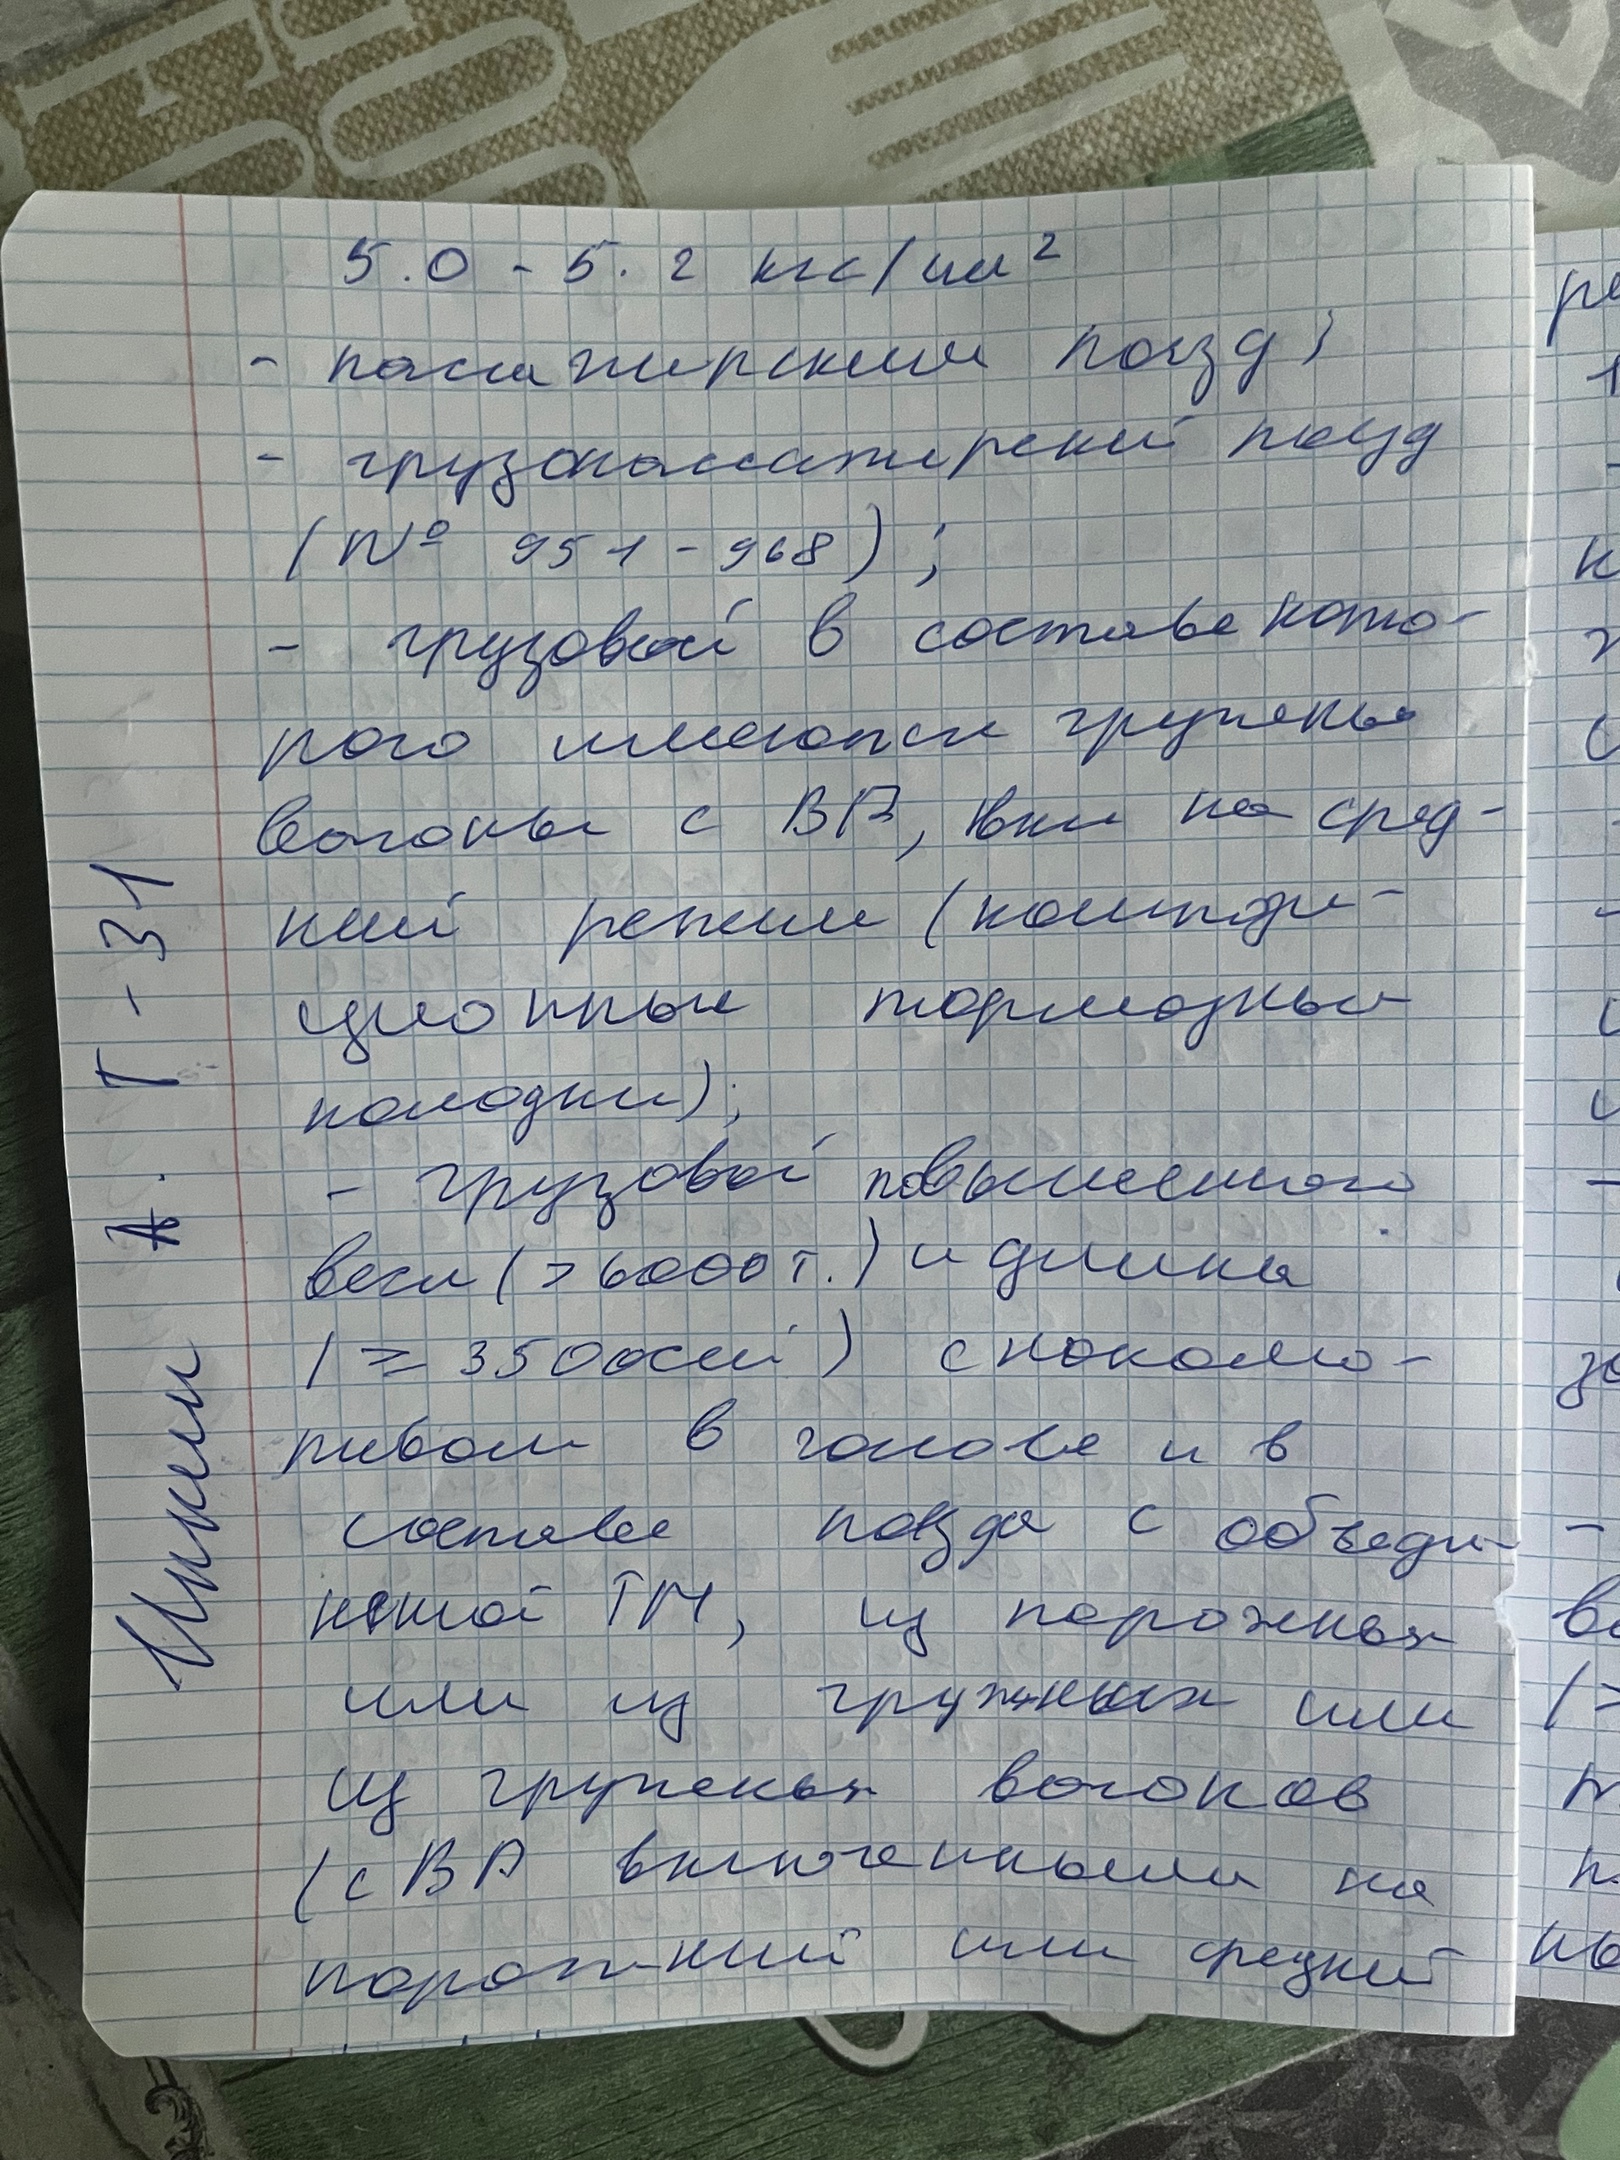 5.0 - 5.2 кгс/см²
- пассажирский поезд;
- грузопассажирский поезд
(№ 951 - 968);
- грузовой в составе кото-
рого имеются груженые
вагоны с ВР, вкл на сред-
ний режим (компози-
ционные тормозные
колодки);
- грузовой повышенного
веса (>6000 т.) и длины
(≥ 350 осей) с локомо-
тивом в голове и в
составе поезда с объеди-
ненной ТМ, из порожных
или из груженых или
из груженых вагонов
(с ВР включенными на
порожний или средний
А. Т - 31